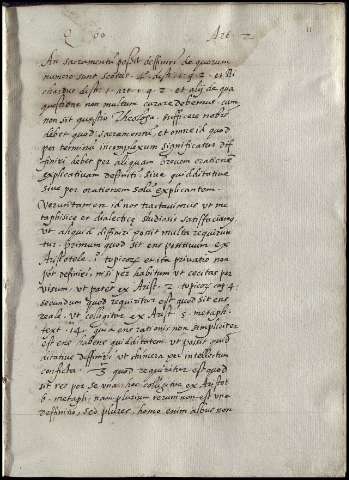 Q 60 Art. 2 11
An sacramentu possit deffiniri de quorum
numero sunt scotus 4. dist. 1. q. 2 et Ri
chardus dist. 1. art. 1. q. 2. et alij de qua
quæstione non multum curare debemus, cum
non sit quæstio Theologa, sufficere nobis
debet quod sacramentū, et omne id quod
per terminū incomplexum significatur dif
finiri debet per aliquam brevem orationē
explicativam definiti, sive quidditative
sive per orationem solū explicantem.
Veruntamen id nos tractaviaus ut me
taphisicæ et dialecticæ studiosis satisfaciamus
ut aliquid diffiniri possit multa requirun
tur. primum quod sit ens positivum ex
Aristotele. topicor. et ita privatio non
pot definiri nisi per habitum ut cecitas per
visum, ut patet ex Arist. 2. topicor cap 4
secundum quod requiritur est quod sit ens
reale. ut colligitur ex Arist. 5 metaph.
text. 14. quia ens rationis non simpliciter
est ens habens quidditatem ut possit quid
ditative deffiniri ut chimera per intellectum
conficta. 3 quod requiritur est quod
sit res per se una hoc colligitur ex Aristot
6. metaph. nam plurium rerum non est una
definitio, sed plures, homo enim albus non